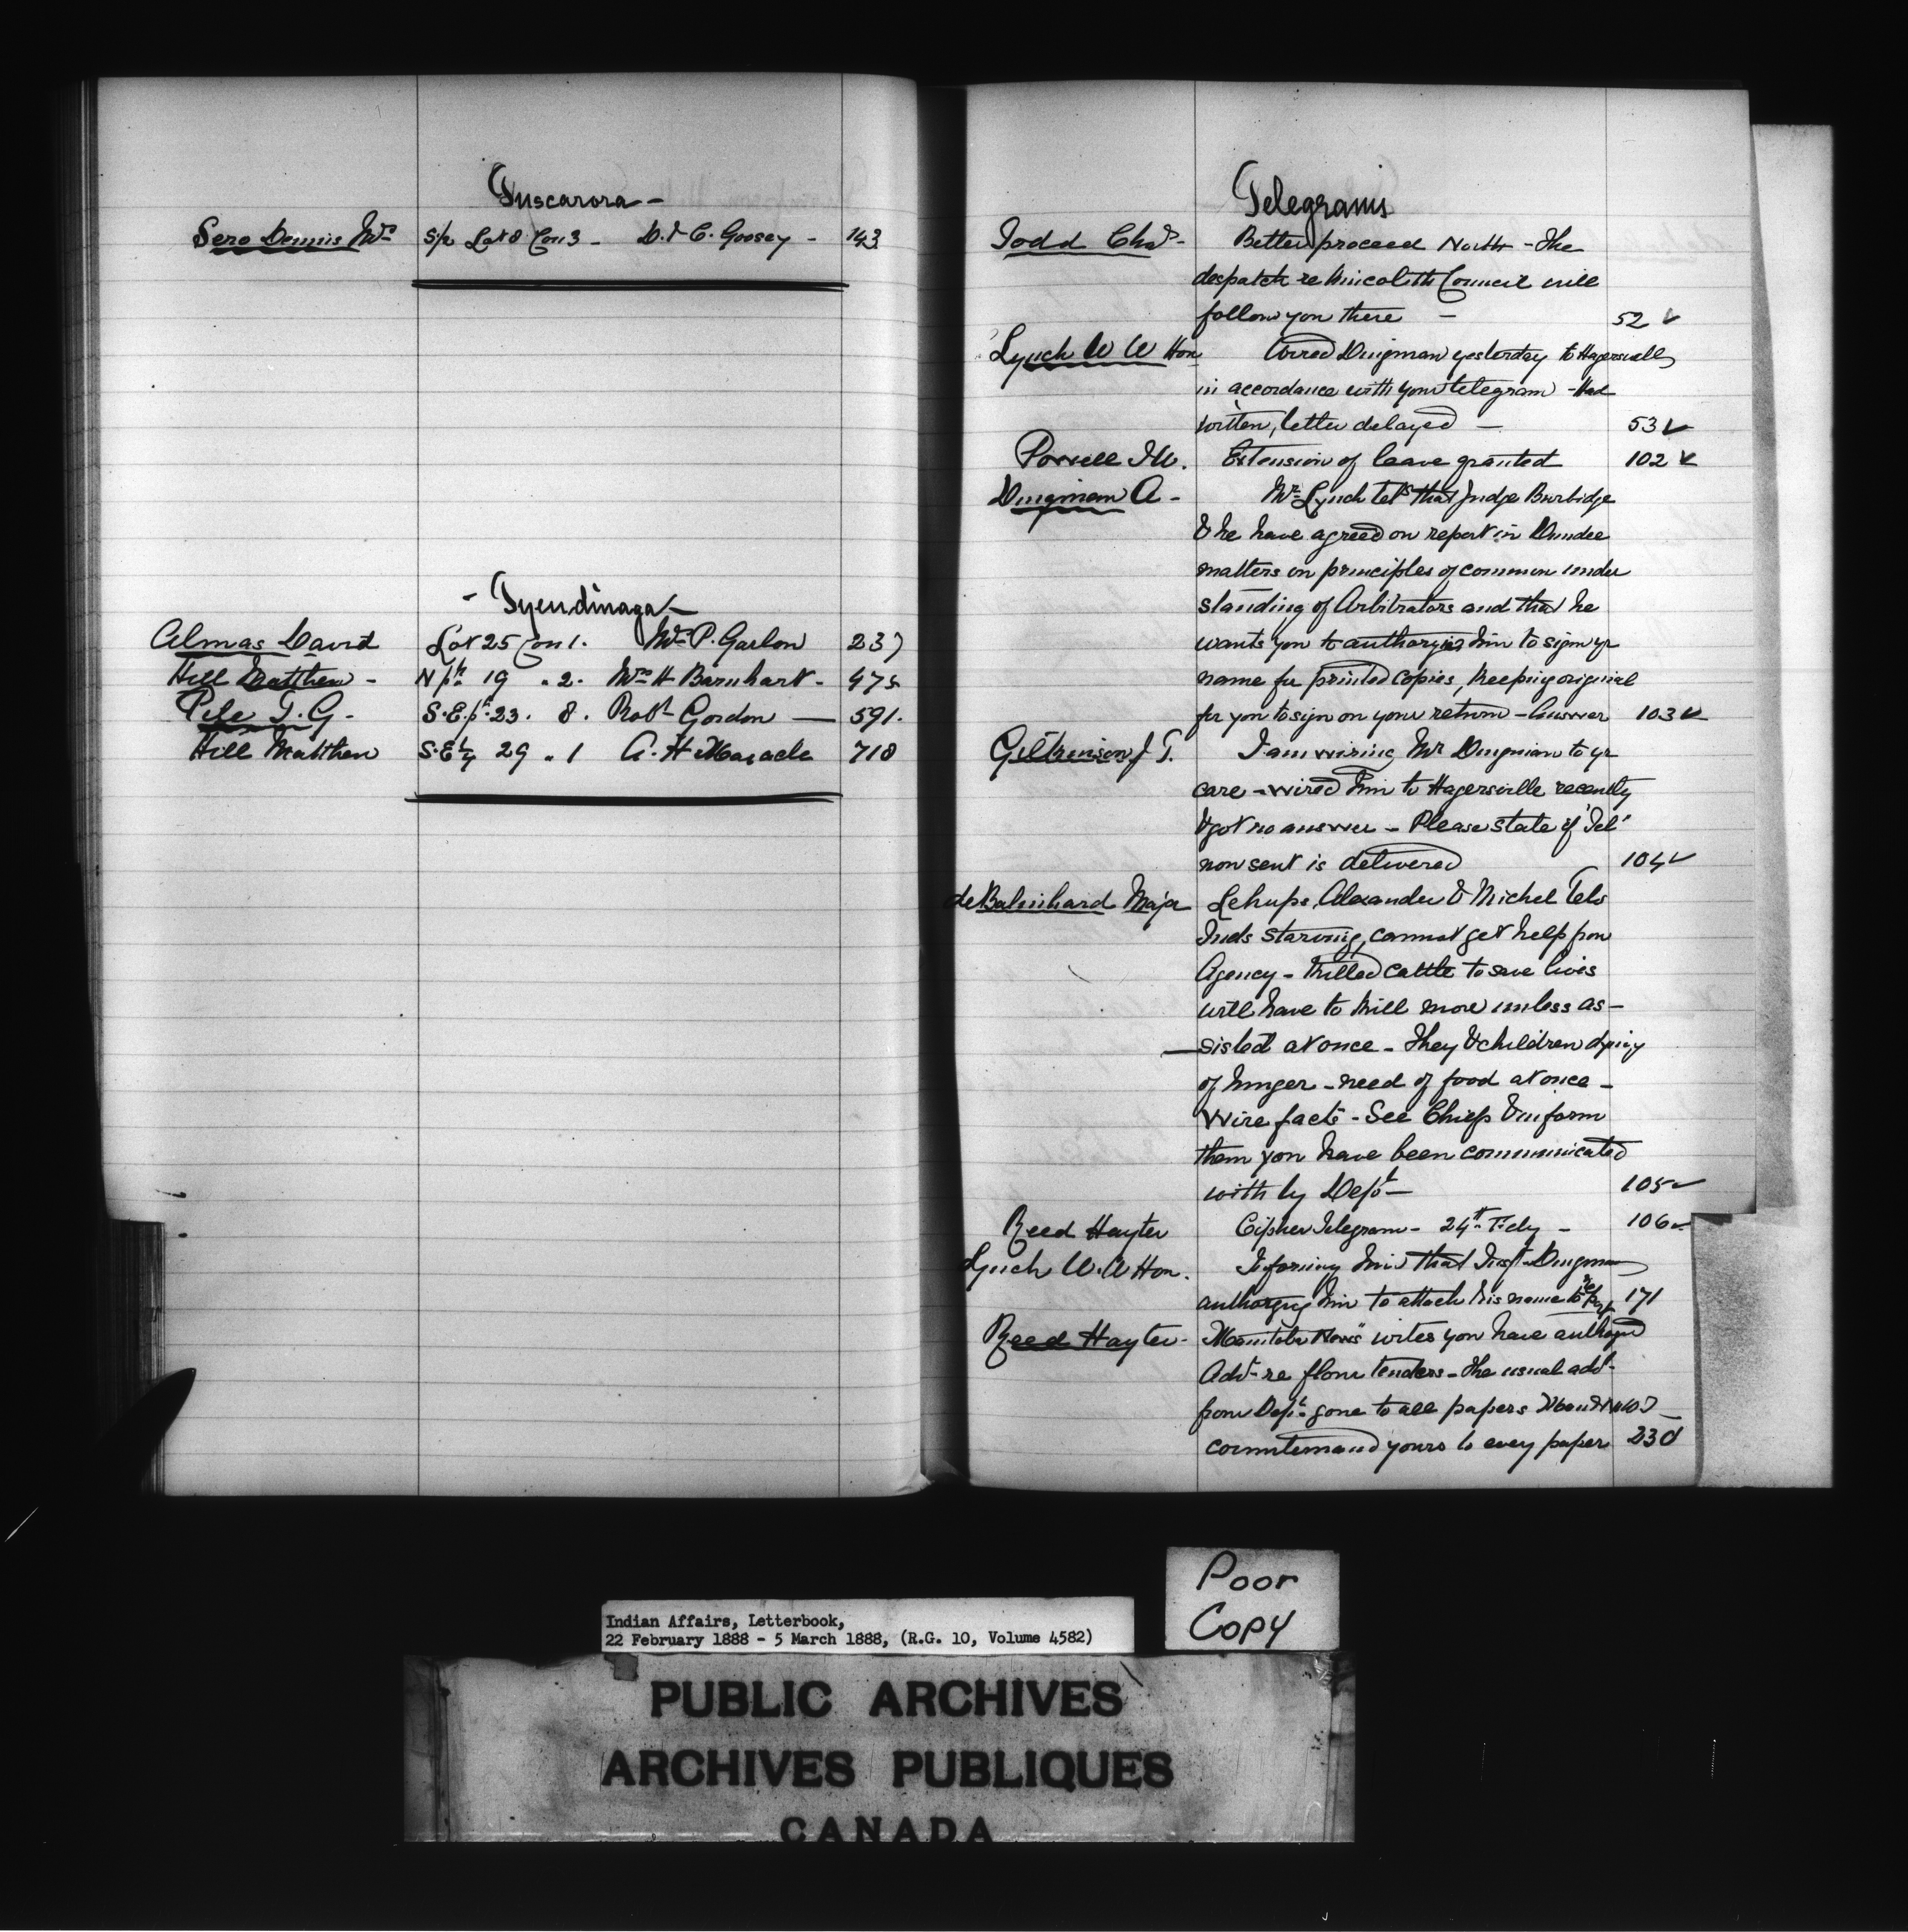 Tuscarora -
Sero Dennis Mrs S/2 Lot 8 Con 3 - D. & C. Goosey - 143
- Tyendinaga -
Almas David Lot 25 Con 1. Mrs P. Garlow 237
Hill Matthew - N pt 19 " 2. Mrs H Barnhart - 475
Pile T. G - S. E. pt 23. 8. Robt Gordon - 591.
Hill Matthew S. E 1/4 29 " 1 A. H Maracle 718
Telegrams
Todd Chas - Better proceed North - The
despatch re Kincolith Council will
follow you there - 52 ✓
Lynch W W Hon Wired Dingman yesterday to Hagersville
in accordance with your telegram - Had
written, letter delayed - 53 ✓
Powell I W. Extension of leave granted 102 ✓
Dingman A - Mr Lynch tels that Judge Burbidge
& he have agreed on report in Dundee
matters on principles of common under
standing of Arbitrators and that he
wants you to authorize him to sign yr
name for printed copies, keeping original
for you to sign on your return - Answer 103 ✓
Gilkinson J T. I am wiring Mr Dingman to yr
care - wired him to Hagersville recently
& got no answer - Please state if Tel
now sent is delivered 104 ✓
de Balinhard Major Alexander & Michel Tels
Inds starving, cannot get help from
Agency - Killed cattle to save lives
will have to kill more unless as-
sisted at once - They & children dying
of hunger - need of food at once -
Wire facts - See Chiefs & inform
them you have been communicated
with by Dept - 105 ✓
Reed Hayter Cipher Telegram - 24th - 106 ✓
Lynch W. W Hon. Informing him that Dingman
authorizes him to attach his name to 171
Reed Hayter - Manitoba writes you have authzd
Advt re flour tenders - the usual advt
from Dept gone to all papers
countermand yours to every paper 230
Poor
Copy
Indian Affairs, Letterbook,
22 February 1888 - 5 March 1888, (R.G. 10, Volume 4582)
PUBLIC ARCHIVES
ARCHIVES PUBLIQUES
CANADA